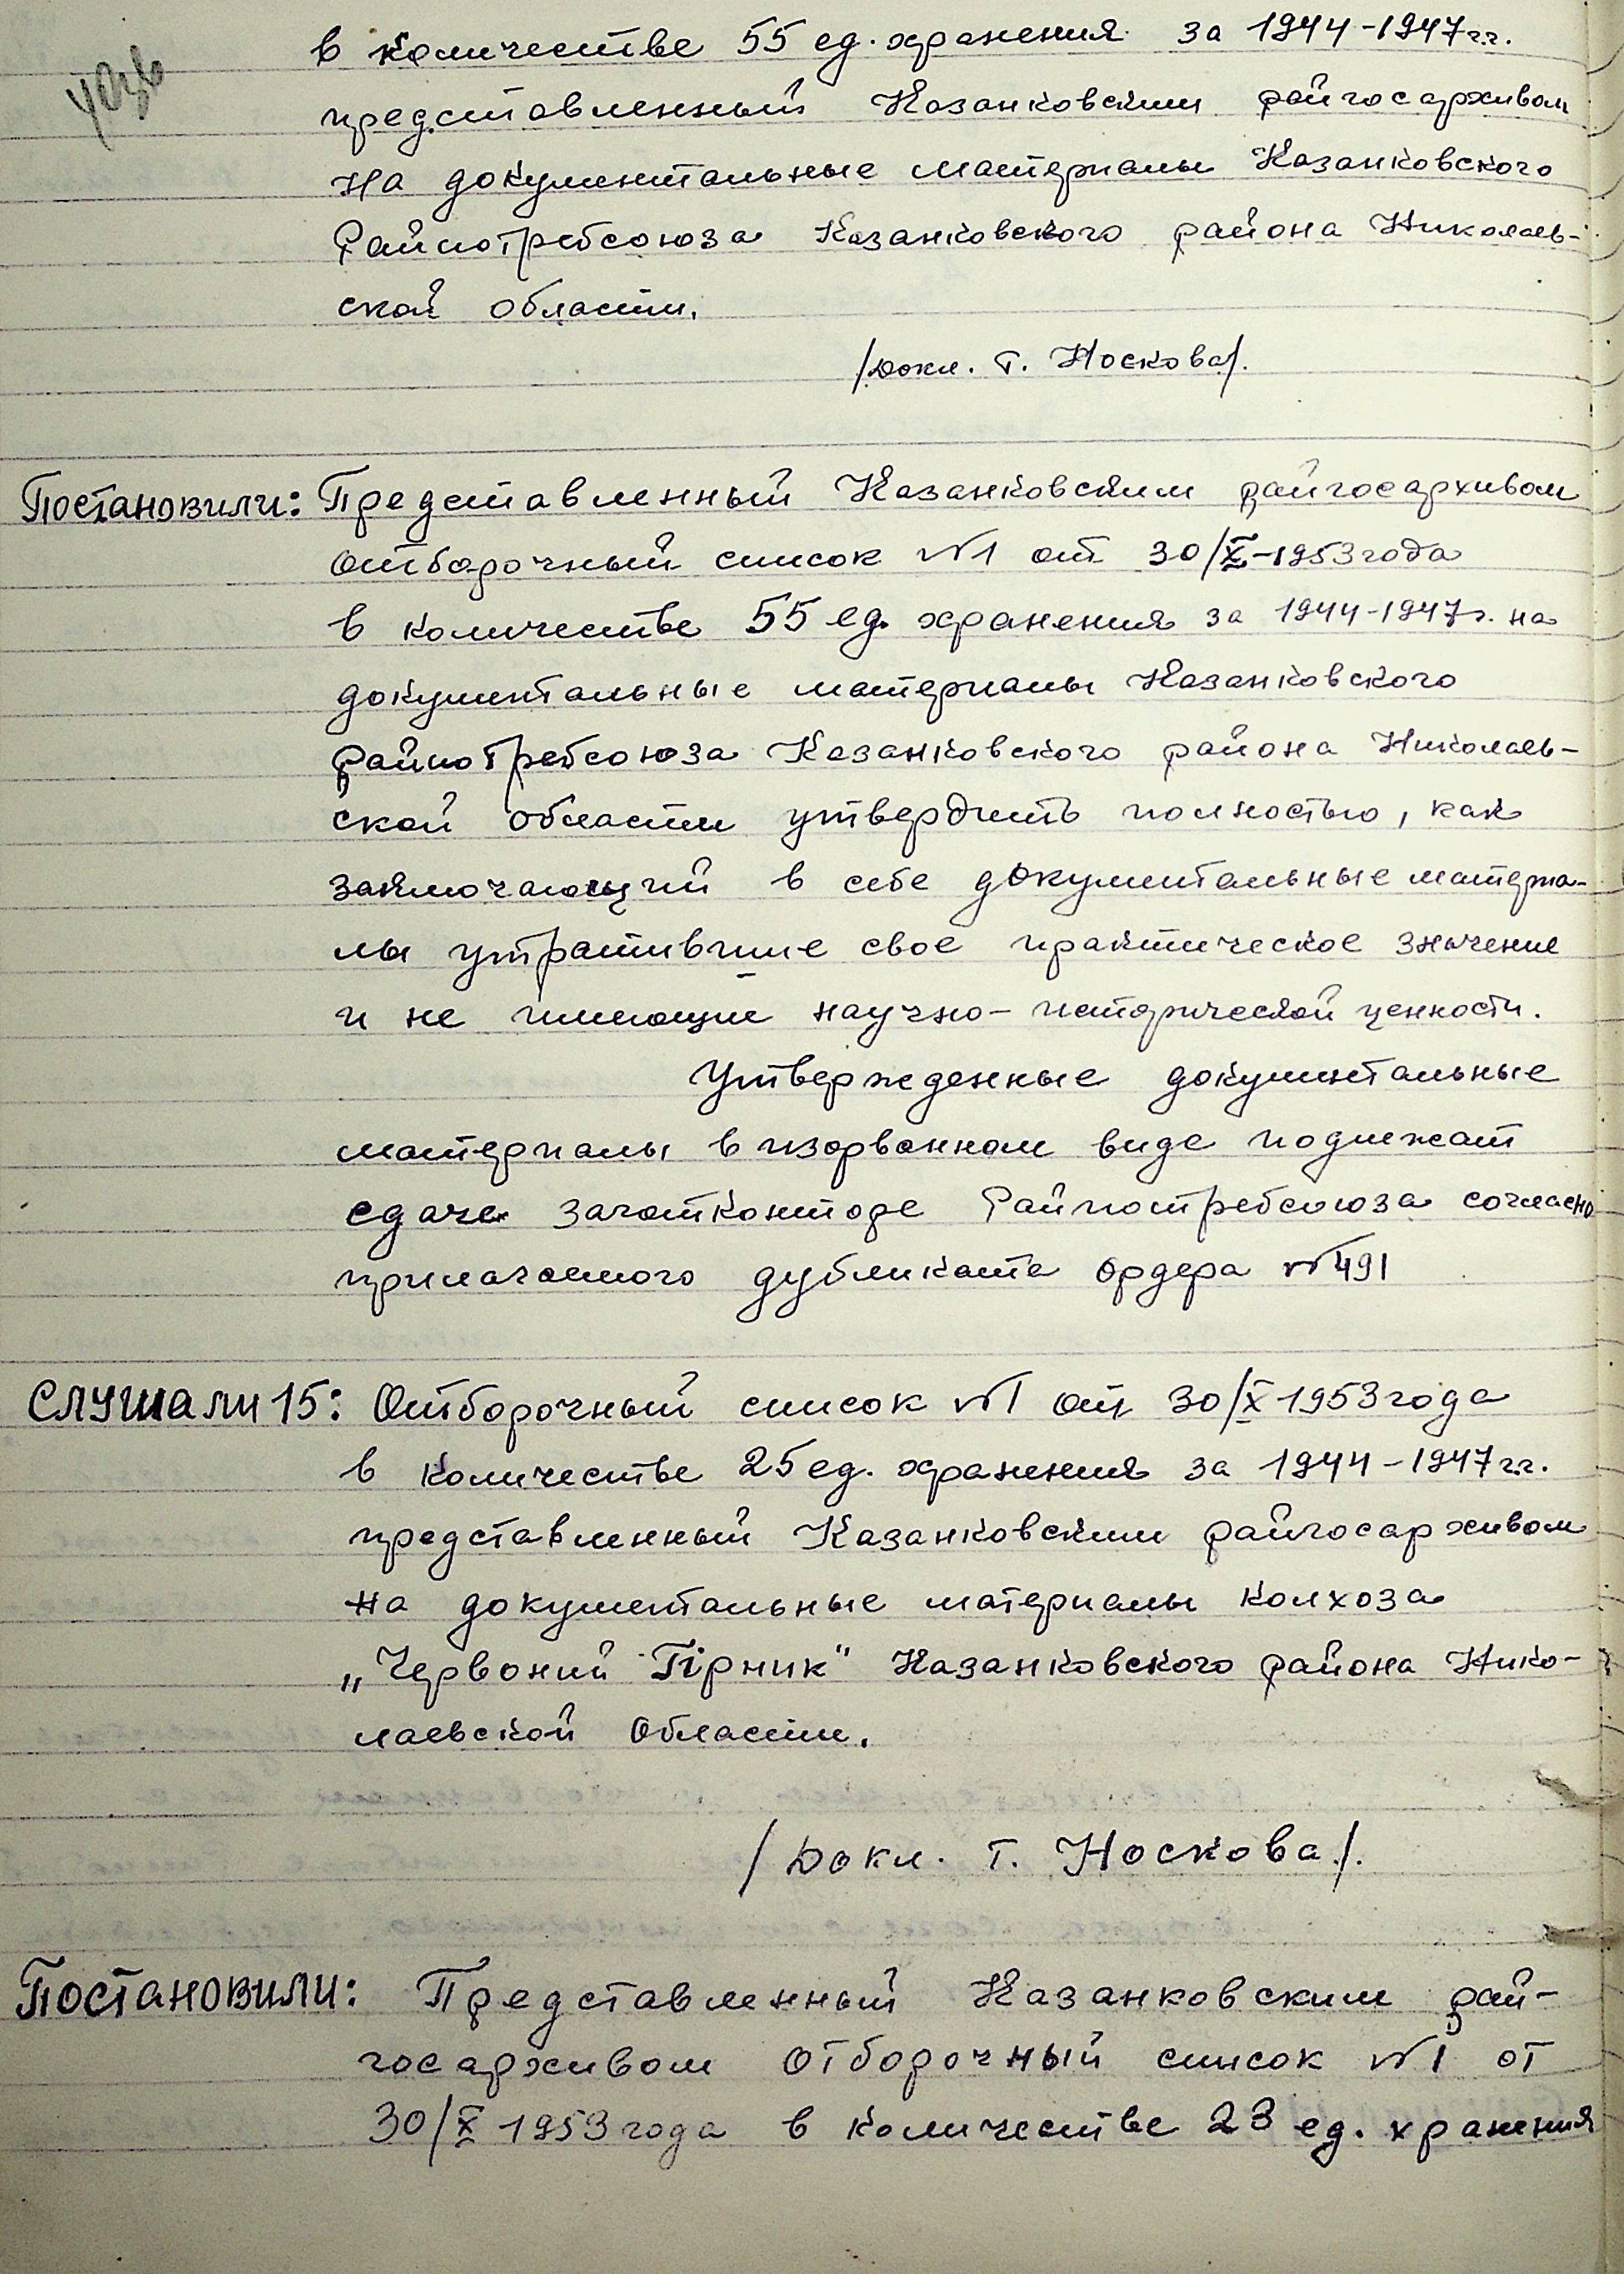 в количестве 55 ед. хранения за 1944-1947 г.г.
представленный Казанковским райгосархивом
на документальные материалы Казанковского
Райпотребсоюза Казанковского района Николаев-
ской области.
/Докл. т. Носкова/.
Постановили: Представленный Казанковским райгосархивом
отборочный список №1 от 30/X-1953 года
в количестве 55 ед. хранения за 1944-1947 г. на
документальные материалы Казанковского
райпотребсоюза Казанковского района Николаев-
ской области утвердить полностью, как
заключающий в себе документальные материа-
лы утратившие свое практическое значение
и не имеющие научно-исторической ценности.
Утвержденные документальные
материалы в изорванном виде подлежат
сдаче заготконторе Райпотребсоюза согласно
прилагаемого дубликата ордера №491
Слушали 15: Отборочный список №1 от 30/X 1953 года
в количестве 25 ед. хранения за 1944-1947 г.г.
представленный Казанковским райгосархивом
на документальные материалы колхоза
„Червоний Гірник" Казанковского района Нико-
лаевской области.
/Докл. т. Носкова/.
Постановили: Представленный Казанковским рай-
госархивом отборочный список №1 от
30/X 1953 года в количестве 23 ед. хранения